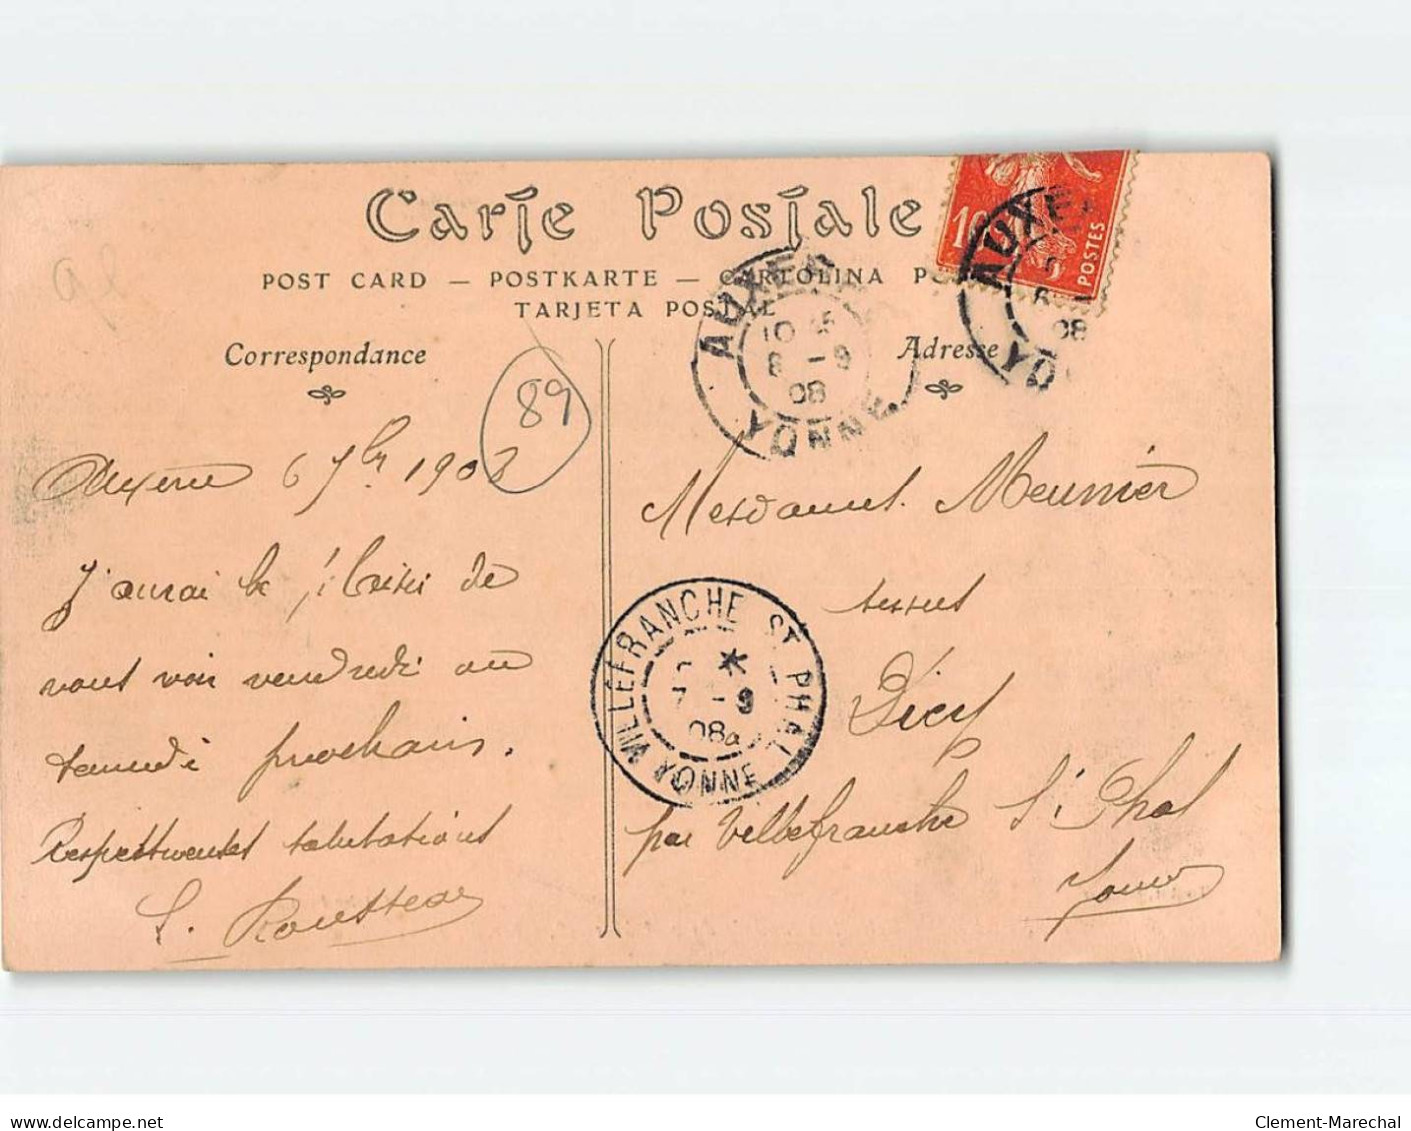 Carte Postale
POST CARD — POSTKARTE — CARTOLINA PO
TARJETA POSTAL
Correspondance
Adresse
10
POSTES
AUXERRE
10 45
8 - 9
08
YONNE
AUXE
08
YO
89
Auxerre 6 7bre 1908
J'aurai le plaisir de
vous voir vendredi ou
samedi prochain.
Respectueuses salutations
S. Rousseau
VILLEFRANCHE ST PHAL
*
7 - 9
08
YONNE
Mesdames Meunier
sœurs
Dicy
par Villefranche St Phal
Yonne
delcampe.net
Clement-Marechal